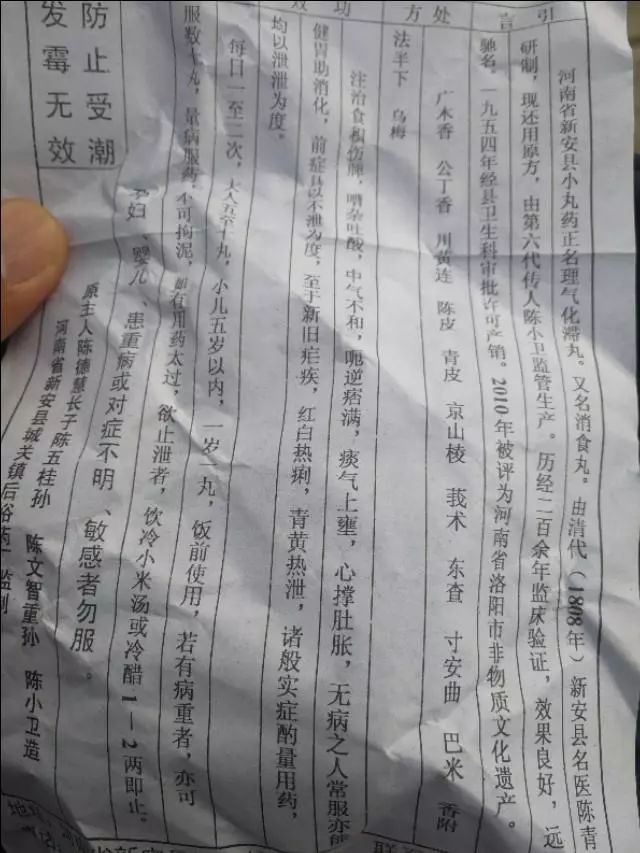 引言
河南省新安县小丸药正名理气化滞丸。又名消食丸。由清代（1808年）新安县名医陈青
研制，现还用原方，由第六代传人陈小卫监管生产。历经二百余年监床验证，效果良好，远
驰名。一九五四年经县卫生科审批许可产销。2010年被评为河南省洛阳市非物质文化遗产。
处方
广木香 公丁香 川黄连 陈皮 青皮 京山棱 莪术 东查 寸安曲 巴米 香附
法半下 乌梅
功效
注治食积伤脾，嘈杂吐酸，中气不和，呃逆痞满，痰气上壅，心撑肚胀，无病之人常服亦能
健胃助消化，前症具以不泄为度，至于新旧疟疾，红白热痢，青黄热泄，诸般实症酌量用药，
均以泄泄为度。
每日一至二次，大人五至十丸，小儿五岁以内，一岁一丸，饭前使用，若有病重者，亦可
服数十丸，量病服药，不可拘泥，如有用药太过，欲止泄者，饮冷小米汤或冷醋1—2两即止。
孕妇、婴儿、患重病或对症不明、敏感者勿服。
原主人陈德慧长子陈五桂孙 陈文智重孙 陈小卫造
河南省新安县城关镇后裕
防止受潮
发霉无效